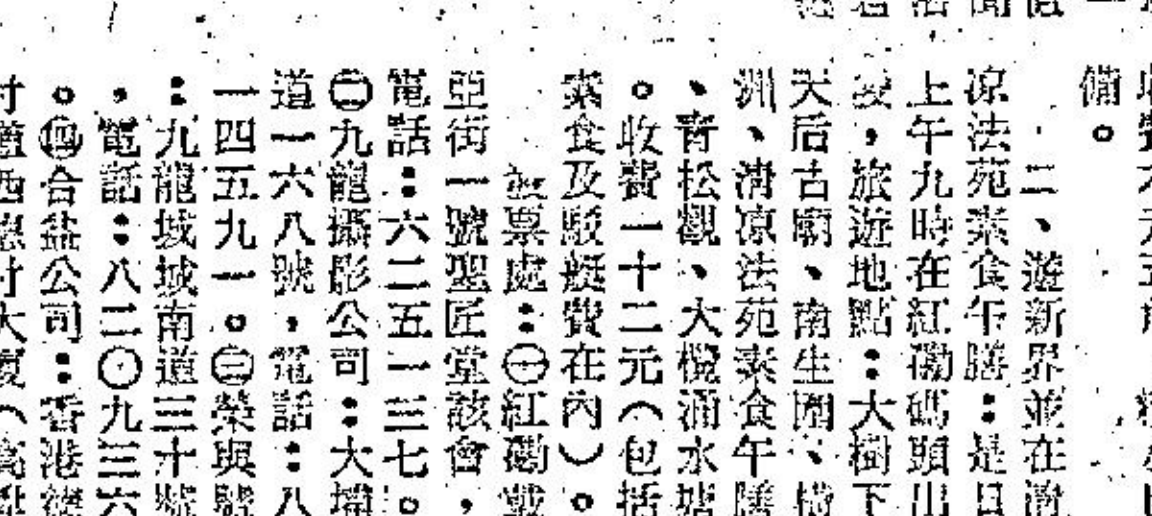 備。
二、遊新界並在清
涼法苑素食午膳：是日
上午九時在紅磡碼頭出
發，旅遊地點：大樹下
天后古廟、南生圍、橫
洲、清涼法苑素食午膳
、青松觀、大欖涌水塘
。收費一十二元（包括
素食及駁艇費在內）。
票處：㊀紅磡
亞街一號聖匠堂該會，
電話：六二五一三七。
㊁九龍攝影公司：大埔
道一六八號，電話：八
一四五九一。㊂榮興號
：九龍城城南道三十號
，電話：八二〇九三六
。㊃合益公司：香港德
大廈（高